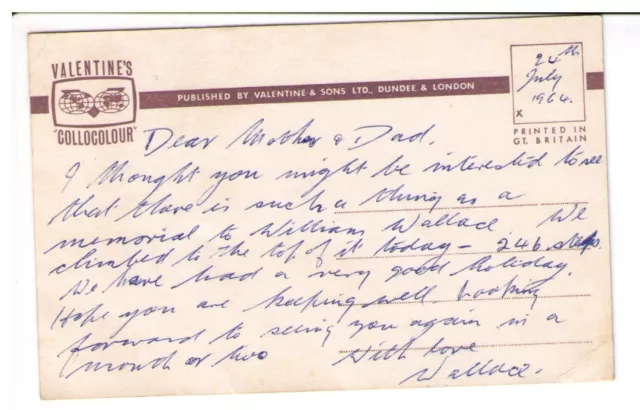 VALENTINE'S
"COLLOCOLOUR"
PUBLISHED BY VALENTINE & SONS LTD., DUNDEE & LONDON
24th
July
1964.
X
PRINTED IN
GT. BRITAIN
Dear Mother & Dad,
I thought you might be interested to see
that there is such a thing as a
memorial to William Wallace. We
climbed to the top of it today - 246 steps.
We have had a very good holiday.
Hope you are keeping well. Looking
forward to seeing you again in a
month or two
With love
Wallace.